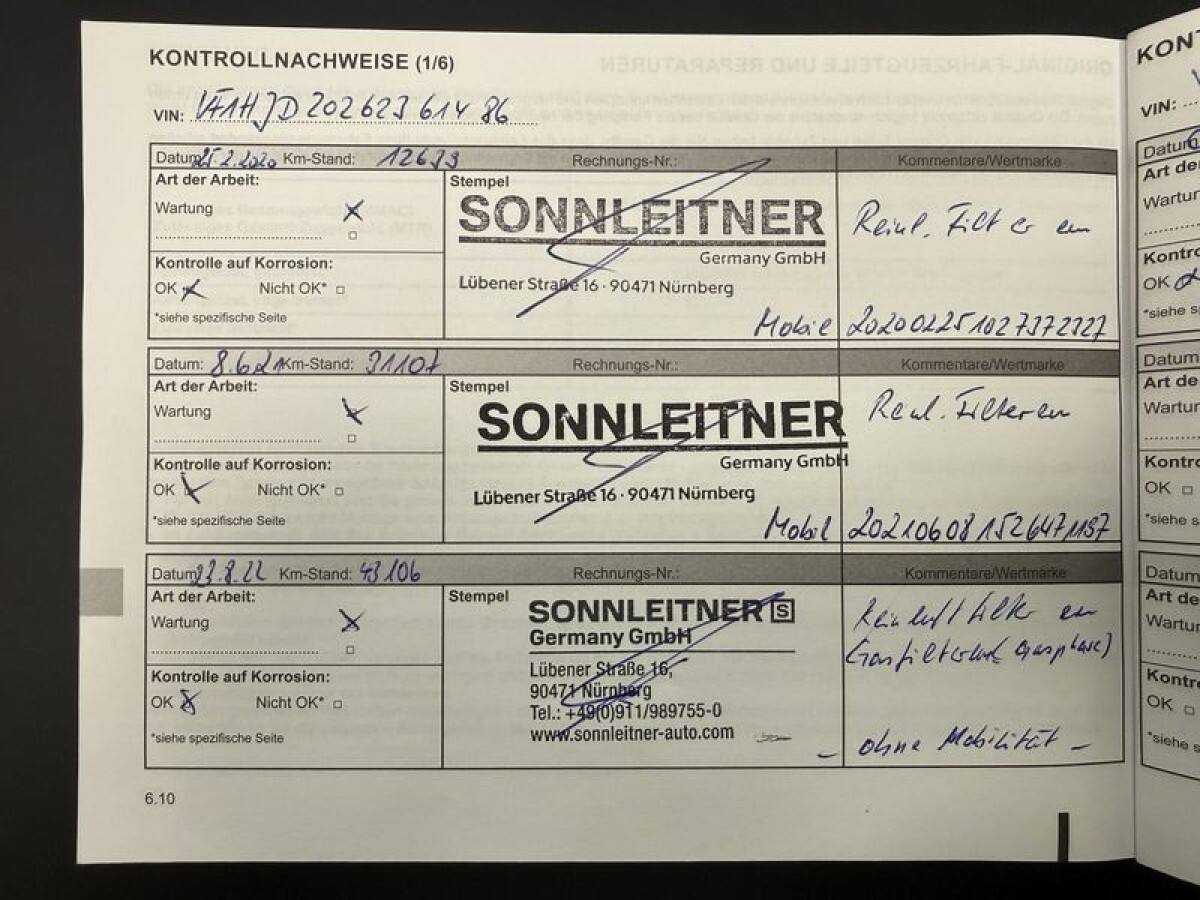 KONTROLLNACHWEISE (1/6)
VIN: VF1HJD20262361486
Datum: 25.2.2020 Km-Stand: 12639 Rechnungs-Nr.: Kommentare/Wertmarke
Art der Arbeit:
Stempel
Wartung
SONNLEITNER
Germany GmbH
Lübener Straße 16 · 90471 Nürnberg
Reinl. Filter
Kontrolle auf Korrosion:
OK Nicht OK*
*siehe spezifische Seite
Mobil 202002251027372327
Datum: 8.6.21 Km-Stand: 31107 Rechnungs-Nr.: Kommentare/Wertmarke
Art der Arbeit:
Stempel
Wartung
SONNLEITNER
Germany GmbH
Lübener Straße 16 · 90471 Nürnberg
Filter
Kontrolle auf Korrosion:
OK Nicht OK*
*siehe spezifische Seite
Mobil 202106081526471197
Datum: 23.8.22 Km-Stand: 43106 Rechnungs-Nr.: Kommentare/Wertmarke
Art der Arbeit:
Stempel
Wartung
SONNLEITNER S
Germany GmbH
Lübener Straße 16,
90471 Nürnberg
Tel.: +49(0)911/989755-0
www.sonnleitner-auto.com
Reinluftfilter
Kontrolle auf Korrosion:
OK Nicht OK*
*siehe spezifische Seite
- ohne Mobilität -
6.10
KONT
VIN:
Datum
Art de
Wartur
Kontro
OK
*siehe s
Datum
Art de
Wartur
Kontro
OK
*siehe s
Datum
Art de
Wartu
Kontr
OK
*siehe